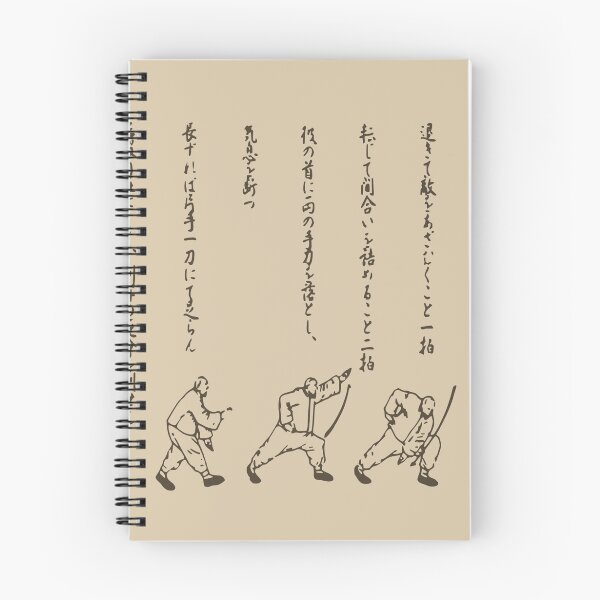 退きて敵をあざむくこと一拍
転じて間合いを詰めること二拍
彼の首に両の手刀を落とし、
気息を断つ
長ずれば片手一刀にて足らん